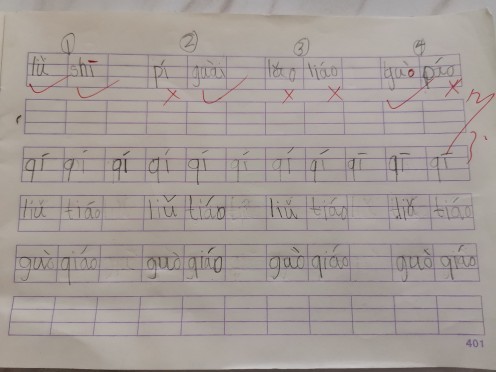 ① ② ③ ④
shī pí liáo guò páo
qí qí qí qí qí qí qí qí qí qī qī qī
liǔ tiáo liǔ tiáo liǔ tiáo liǔ tiáo
guò qiáo guò qiáo guò qiáo guò qiáo
401